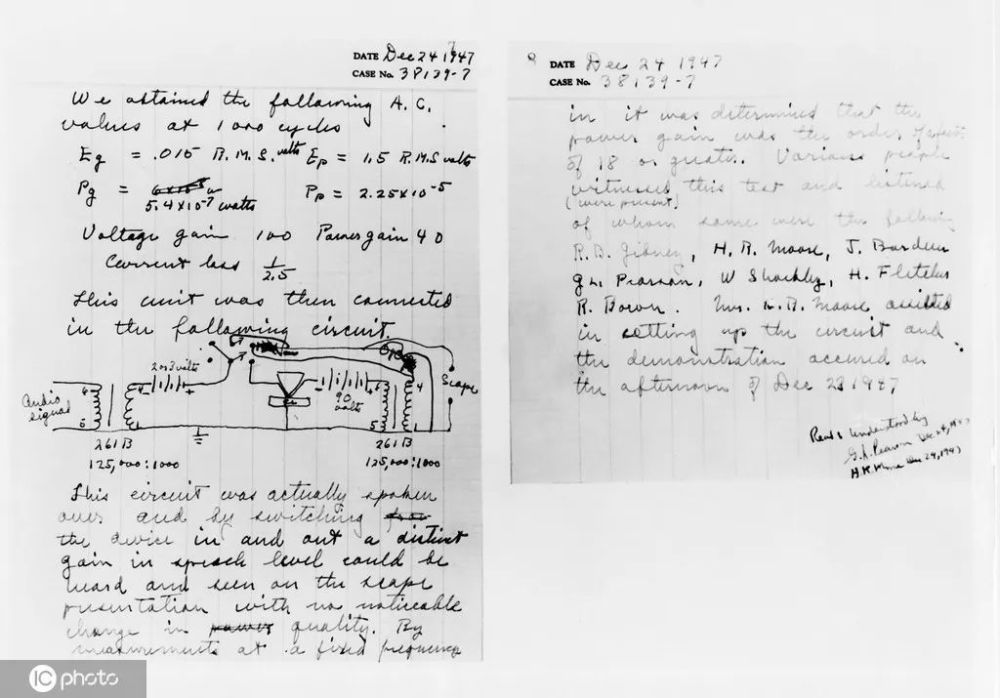 DATE Dec 24 1947
CASE No. 38139-7
We obtained the following A.C.
values at 1000 cycles
Eg = .015 R.M.S. volts Ep = 1.5 R.M.S volts
Pg = 5.4 x 10-7 watts Pp = 2.25 x 10-5
Voltage gain 100 Power gain 40
Current loss 1/2.5
This unit was then connected
in the following circuit.
2 or 3 volts
90 volts
Scope
Audio signal
261B
125,000:1000
261B
125,000:1000
This circuit was actually spoken
over and by switching
the device in and out a distinct
gain in speech level could be
heard and seen on the scope
presentation with no noticeable
change in quality. By
measurements at a fixed frequency
9
DATE Dec 24 1947
CASE No. 38139-7
in it was determined that the
power gain was the order of a factor
of 18 or greater. Various people
witnessed this test and listened
(were present)
of whom some were the following
R.B. Gibney, H.R. Moore, J. Bardeen
G.L. Pearson, W Shockley, H. Fletcher
R. Bown. Mr. H.R. Moore assisted
in setting up the circuit and
the demonstration occured on
the afternoon of Dec 23 1947
Read & Understood by
G.L. Pearson Dec 24, 1947
H.R. Moore Dec 24, 1947
IC photo